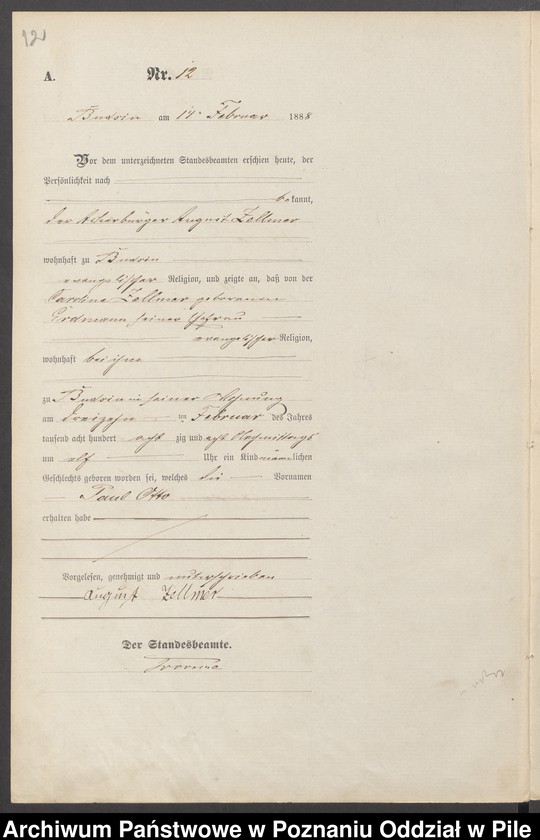 121
A. Nr. 12
Budsin am 14. Februar 1888
Vor dem unterzeichneten Standesbeamten erschien heute, der
Persönlichkeit nach
bekannt,
der Ackerbürger August Zellmer
wohnhaft zu Budsin
evangelischer Religion, und zeigte an, daß von der
Caroline Zellmer geborenen
Erdmann seiner Ehefrau
evangelischer Religion,
wohnhaft bei ihm
zu Budsin in seiner Wohnung
am dreizehn ten Februar des Jahres
tausend acht hundert acht zig und acht Nachmittags
um elf Uhr ein Kind männlichen
Geschlechts geboren worden sei, welches die Vornamen
Paul Otto
erhalten habe
Vorgelesen, genehmigt und unterschrieben
August Zellmer
Der Standesbeamte.
Archiwum Państwowe w Poznaniu Oddział w Pile